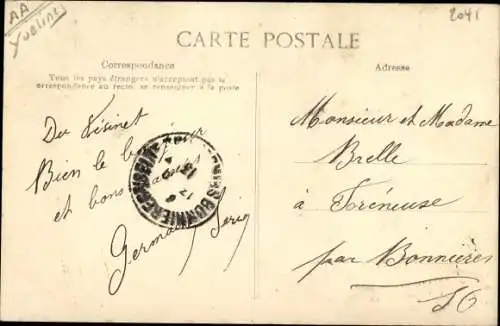 AA
Yvelines
2041
CARTE POSTALE
Correspondance
Tous les pays étrangers n'acceptent pas la
correspondance au recto, se renseigner à la poste
Adresse
Du Vésinet
Bien le bonjour
et bons baisers
Germaine
Monsieur et Madame
Brelle
à Fréneuse
par Bonnières
SO